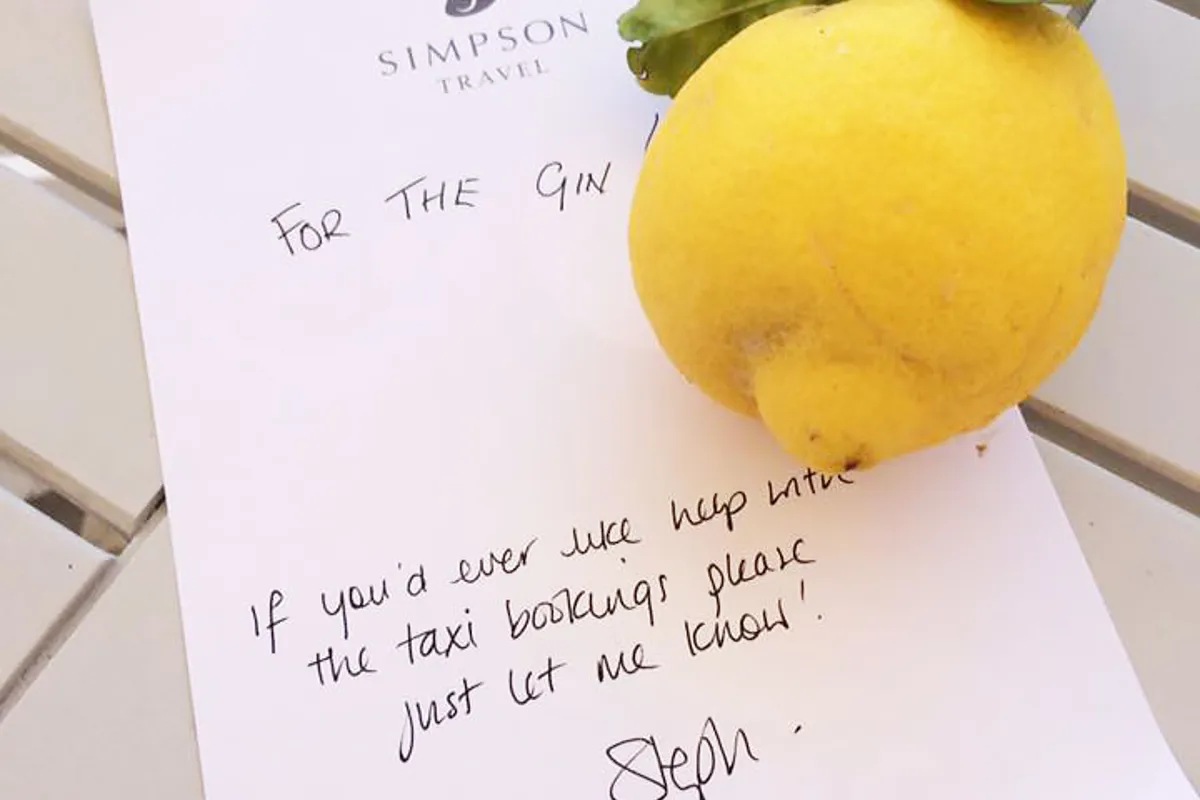 SIMPSON
TRAVEL
FOR THE GIN
If you'd ever like help with
the taxi bookings please
just let me know!
Steph.